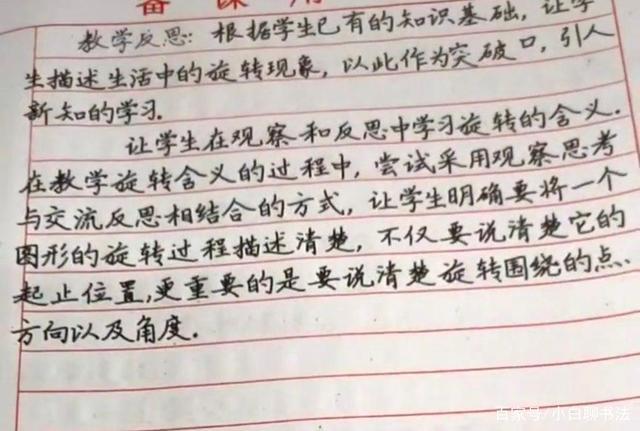 备课用
教学反思：根据学生已有的知识基础，让学
生描述生活中的旋转现象，以此作为突破口，引人
新知的学习.
让学生在观察和反思中学习旋转的含义.
在教学旋转含义的过程中，尝试采用观察思考
与交流反思相结合的方式，让学生明确要将一个
图形的旋转过程描述清楚，不仅要说清楚它的
起止位置,更重要的是要说清楚旋转围绕的点、
方向以及角度.
百家号/小白聊书法